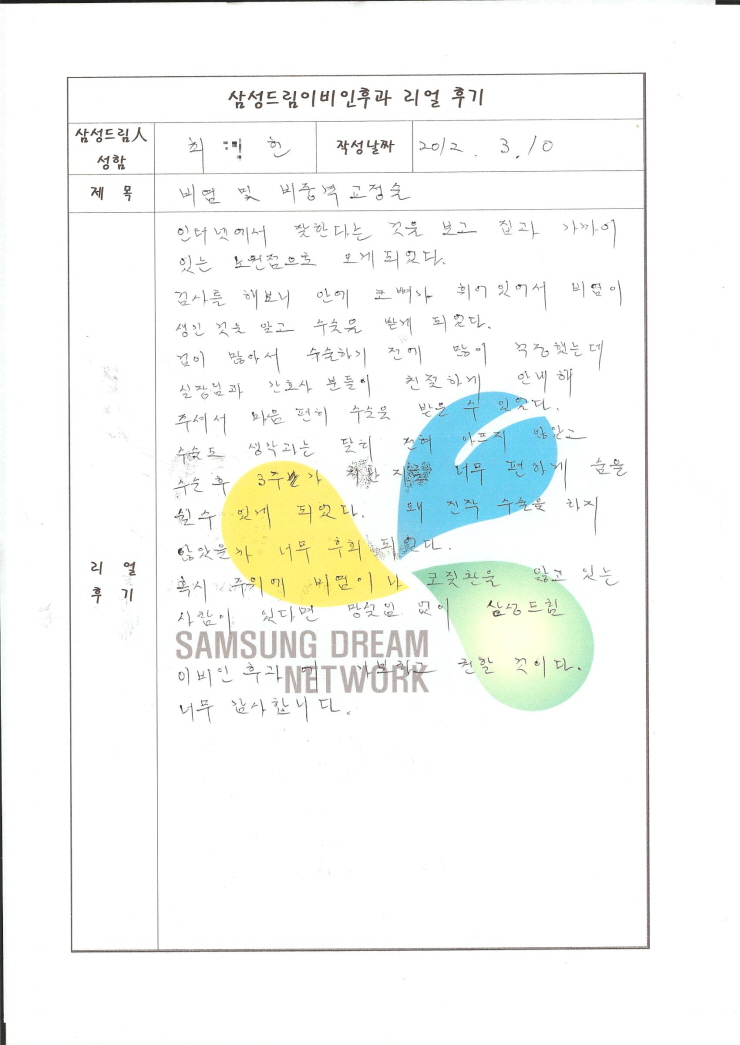 삼성드림이비인후과 리얼 후기
삼성드림人 성함
최 헌
작성날짜
2012. 3. 10
제 목
비염 및 비중격교정술
리 얼
후 기
인터넷에서 잘한다는 것을 보고 집과 가까이
있는 노원점으로 오게 되었다.
검사를 해보니 안에 코뼈가 휘어있어서 비염이
생인 것을 알고 수술을 받게 되었다.
겁이 많아서 수술하기 전에 많이 걱정했는데
실장님과 간호사 분들이 친절하게 안내해
주셔서 마음 편히 수술을 받을 수 있었다.
수술도 생각과는 달리 전혀 아프지 않았고
수술 후 3주 너무 편하게 숨을
쉴 수 있게 되었다. 왜 진작 수술을 하지
않았을까 너무 후회 되었다.
혹시 주위에 비염이나 코질환을 앓고 있는
사람이 있다면 망설임 없이 삼성드림
이비인후과에 가보라고 천할 것이다.
너무 감사합니다.
SAMSUNG DREAM
NETWORK